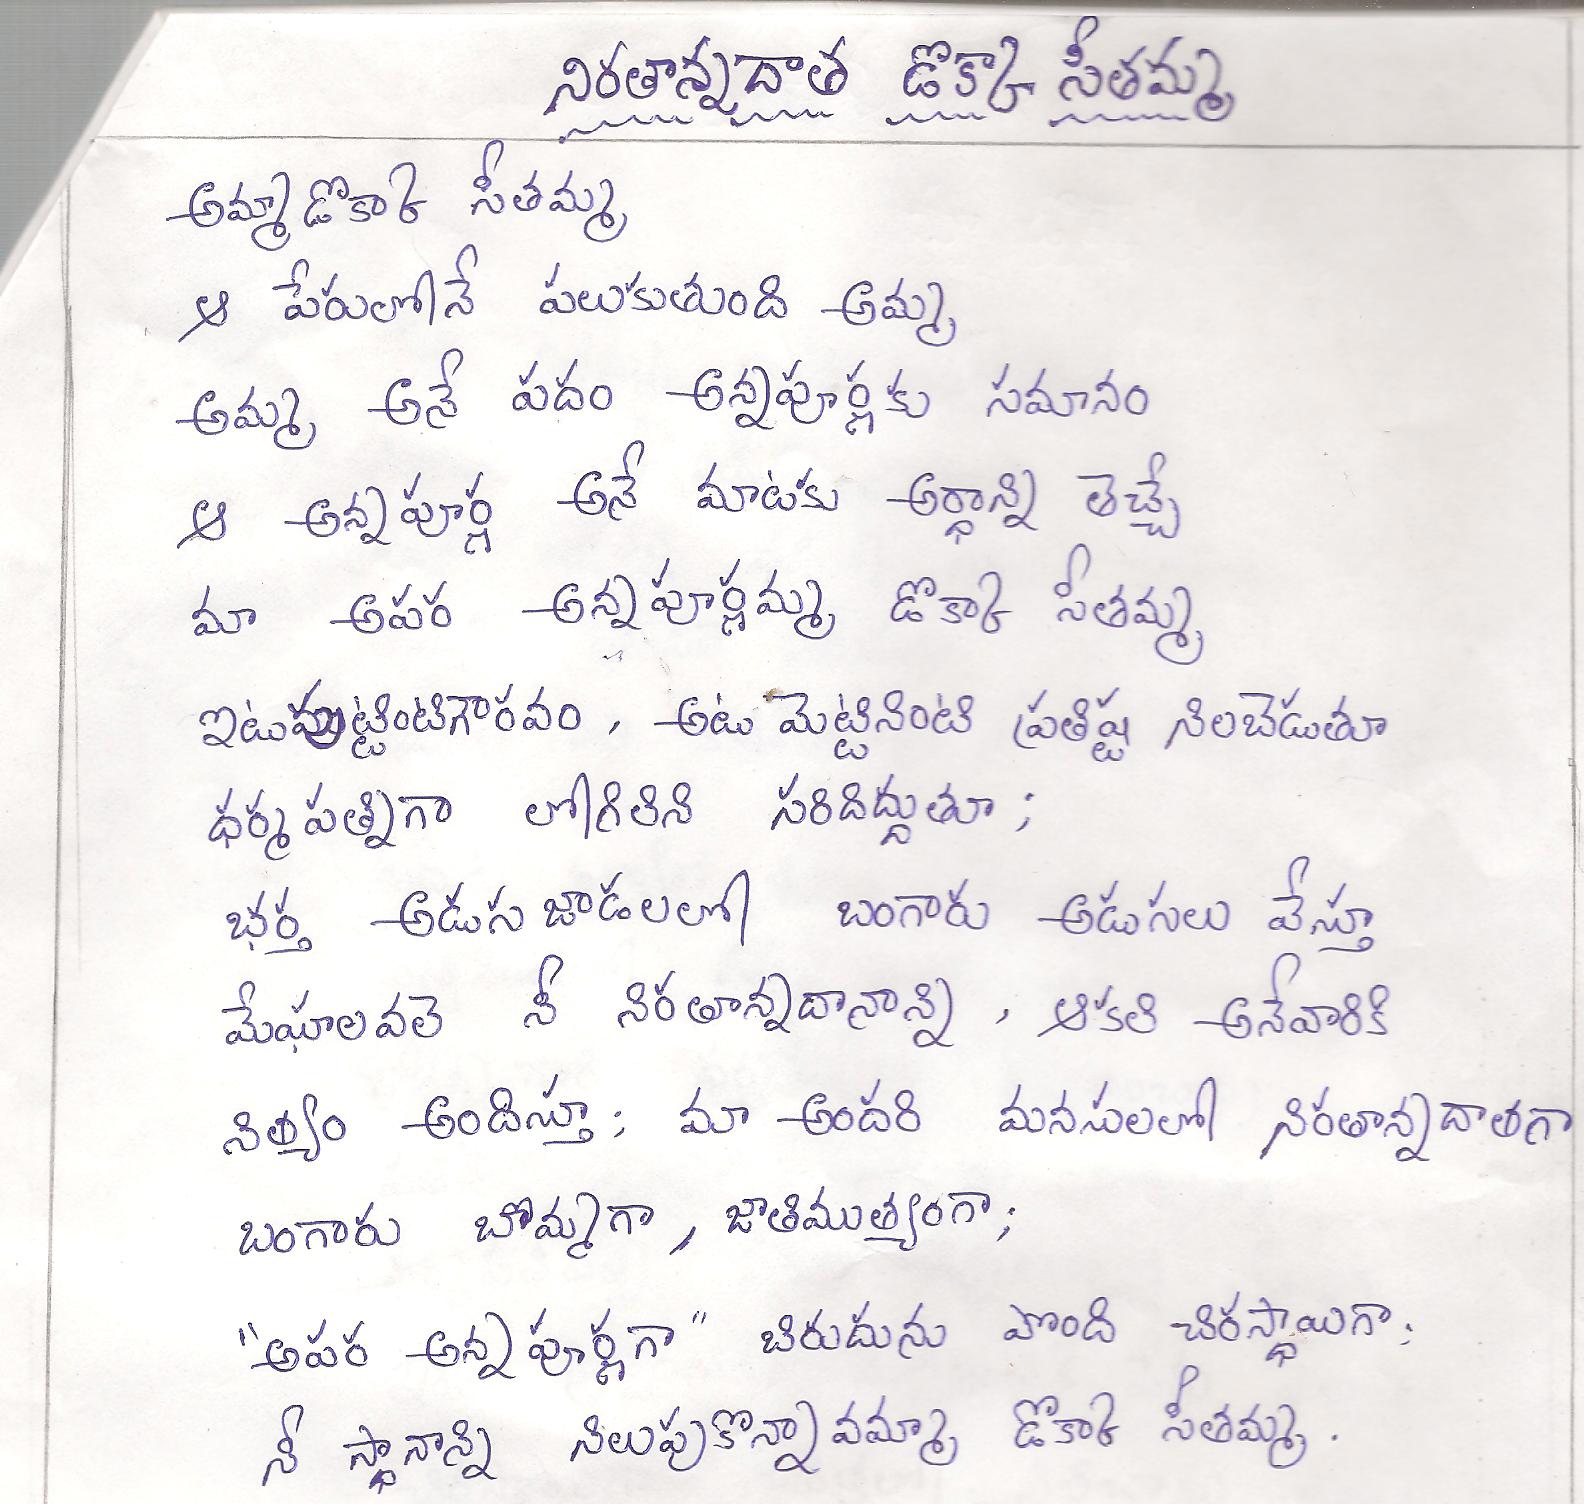 నిరతాన్నదాత డొక్కా సీతమ్మ
అమ్మా డొక్కా సీతమ్మ
ఆ పేరులోనే పలుకుతుంది అమ్మ
అమ్మ అనే పదం అన్నపూర్ణకు సమానం
ఆ అన్నపూర్ణ అనే మాటకు అర్ధాన్ని తెచ్చే
మా అపర అన్నపూర్ణమ్మ డొక్కా సీతమ్మ
ఇటుపుట్టింటిగౌరవం, అటు మెట్టినింటి ప్రతిష్ట నిలబెడుతూ
ధర్మపత్నిగా లోగిలిని సరిదిద్దుతూ;
భర్త అడుగుజాడలలో బంగారు అడుగులు వేస్తూ
మేఘాలవలె నీ నిరతాన్నదానాన్ని, ఆకలి అనేవారికి
నిత్యం అందిస్తూ; మా అందరి మనసులలో నిరతాన్నదాతగా
బంగారు బొమ్మగా, జాతిముత్యంగా;
"అపర అన్నపూర్ణగా" బిరుదును పొంది చిరస్థాయిగా;
నీ స్థానాన్ని నిలుపుకొన్నావమ్మా డొక్కా సీతమ్మ.